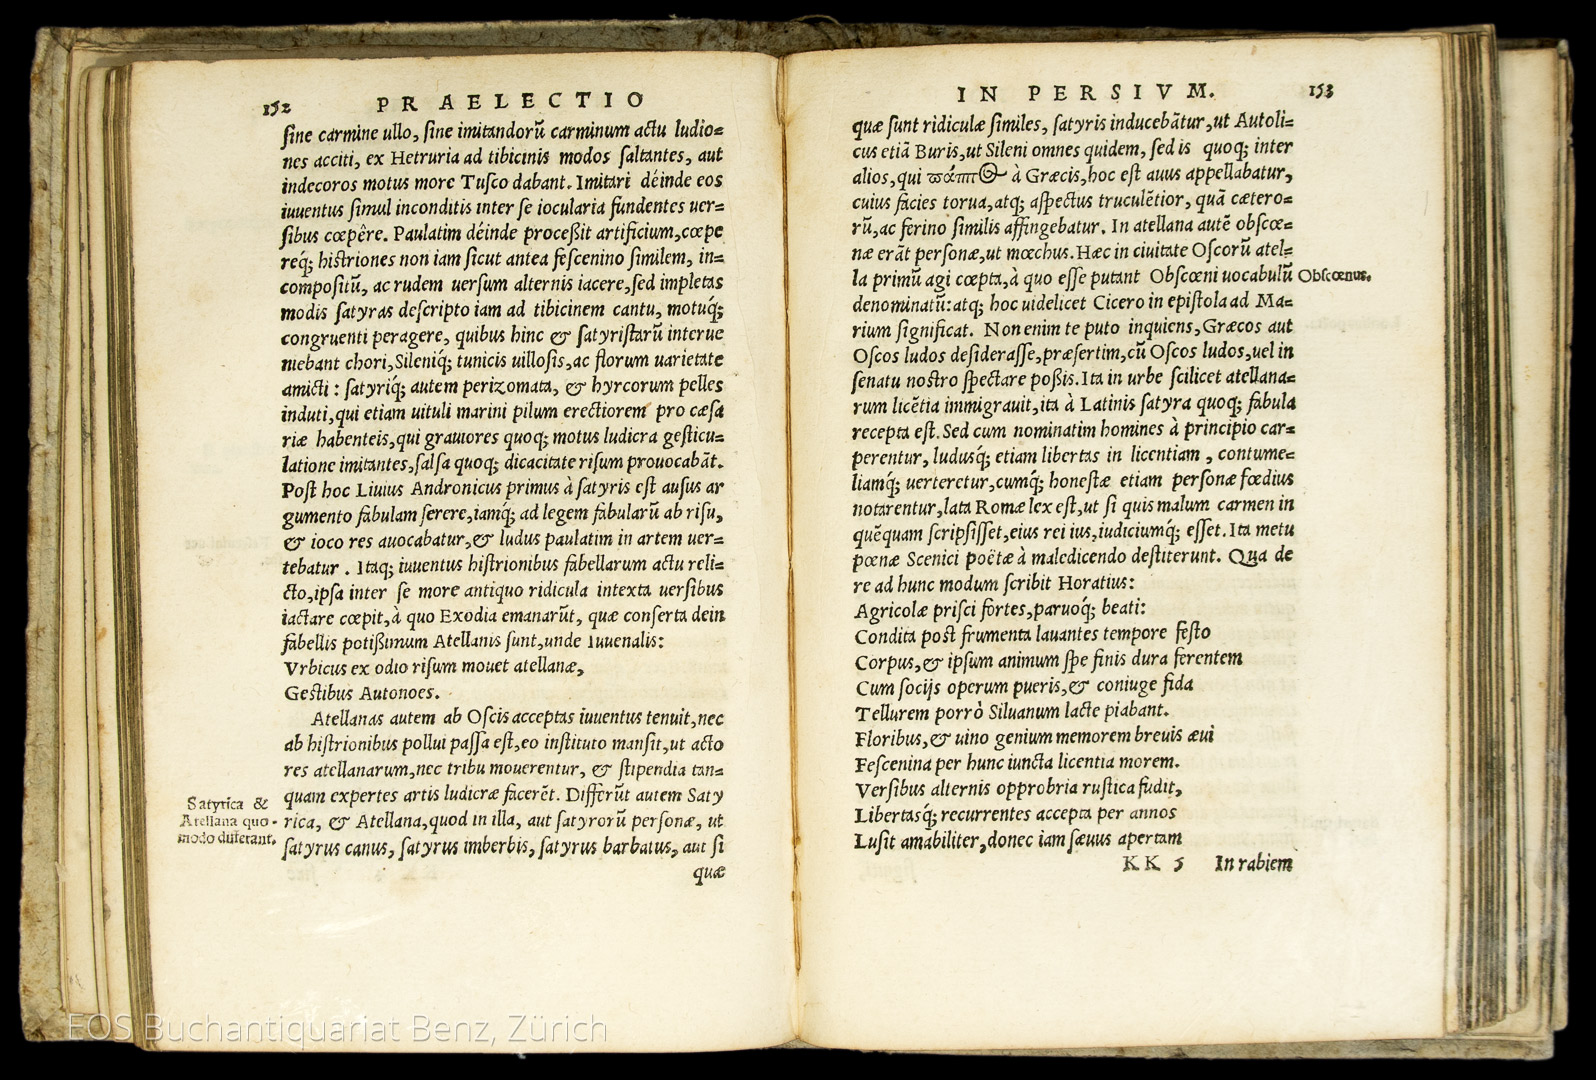 152 PRAELECTIO
ſine carmine ullo, ſine imitandorũ carminum actu ludio=
nes acciti, ex Hetruria ad tibicinis modos ſaltantes, aut
indecoros motus more Tuſco dabant. Imitari déinde eos
iuuentus ſimul inconditis inter ſe iocularia fundentes uer=
ſibus cœpêre. Paulatim déinde proceßit artificium, cœpe
req́; hiſtriones non iam ſicut antea feſcenino ſimilem, in=
compoſitũ, ac rudem uerſum alternis iacere, ſed impletas
modis ſatyras deſcripto iam ad tibicinem cantu, motuq́;
congruenti peragere, quibus hinc & ſatyriſtarũ interue
niebant chori, Sileniq́; tunicis uilloſis, ac florum uarietate
amicti : ſatyriq́; autem perizomata, & hyrcorum pelles
induti, qui etiam uituli marini pilum erectiorem pro cæſa
riæ habenteis, qui grauiores quoq; motus ludicra geſticu=
latione imitantes, ſalſa quoq; dicacitate riſum prouocabãt.
Poſt hoc Liuius Andronicus primus à ſatyris eſt auſus ar
gumento fabulam ſerere, iamq́; ad legem fabularũ ab riſu,
& ioco res auocabatur, & ludus paulatim in artem uer=
tebatur . Itaq; iuuentus hiſtrionibus fabellarum actu reli=
cto, ipſa inter ſe more antiquo ridicula intexta uerſibus
iactare cœpit, à quo Exodia emanarũt, quæ conſerta dein
fabellis potißimum Atellanis ſunt, unde Iuuenalis:
Vrbicus ex odio riſum mouet atellanæ,
Geſtibus Autonoes.
Atellanas autem ab Oſcis acceptas iuuentus tenuit, nec
ab hiſtrionibus pollui paſſa eſt, eo inſtituto manſit, ut acto
res atellanarum, nec tribu mouerentur, & ſtipendia tan=
quam expertes artis ludicræ facerẽt. Differũt autem Saty
rica, & Atellana, quod in illa, aut ſatyrorũ perſonæ, ut
ſatyrus canus, ſatyrus imberbis, ſatyrus barbatus, aut ſi
quæ
Satyrica &
Atellana quo-
modo differant.
IN PERSIVM. 153
quæ ſunt ridiculæ ſimiles, ſatyris inducebãtur, ut Autoli=
cus etiã Buris, ut Sileni omnes quidem, ſed is quoq; inter
alios, qui ϖάππος à Græcis, hoc eſt auus appellabatur,
cuius facies torua, atq; aſpectus truculẽtior, quã cætero=
rũ, ac ferino ſimilis affingebatur. In atellana autẽ obſcœ=
næ erãt perſonæ, ut mœchus. Hæc in ciuitate Oſcorũ atel=
la primũ agi cœpta, à quo eſſe putant Obſcœni uocabulũ
denominatũ: atq; hoc uidelicet Cicero in epiſtola ad Ma=
rium ſignificat. Non enim te puto inquiens, Græcos aut
Oſcos ludos deſideraſſe, præſertim, cũ Oſcos ludos, uel in
ſenatu noſtro ſpectare poßis. Ita in urbe ſcilicet atellana=
rum licẽtia immigrauit, ita à Latinis ſatyra quoq; fabula
recepta eſt. Sed cum nominatim homines à principio car=
perentur, ludusq́; etiam libertas in licentiam , contume=
liamq́; uerteretur, cumq́; honeſtæ etiam perſonæ fœdius
notarentur, lata Romæ lex eſt, ut ſi quis malum carmen in
quẽquam ſcripſiſſet, eius rei ius, iudiciumq́; eſſet. Ita metu
pœnæ Scenici poëtæ à maledicendo deſtiterunt. Qua de
re ad hunc modum ſcribit Horatius:
Agricolæ priſci fortes, paruoq́; beati:
Condita poſt frumenta lauantes tempore feſto
Corpus, & ipſum animum ſpe finis dura ferentem
Cum ſocijs operum pueris, & coniuge fida
Tellurem porrò Siluanum lacte piabant.
Floribus, & uino genium memorem breuis æui
Feſcenina per hunc iuncta licentia morem.
Verſibus alternis opprobria ruſtica fudit,
Libertasq́; recurrentes accepta per annos
Luſit amabiliter, donec iam ſæuus apertam
KK 5 In rabiem
Obſcœnus.
EOS Buchantiquariat Benz, Zürich